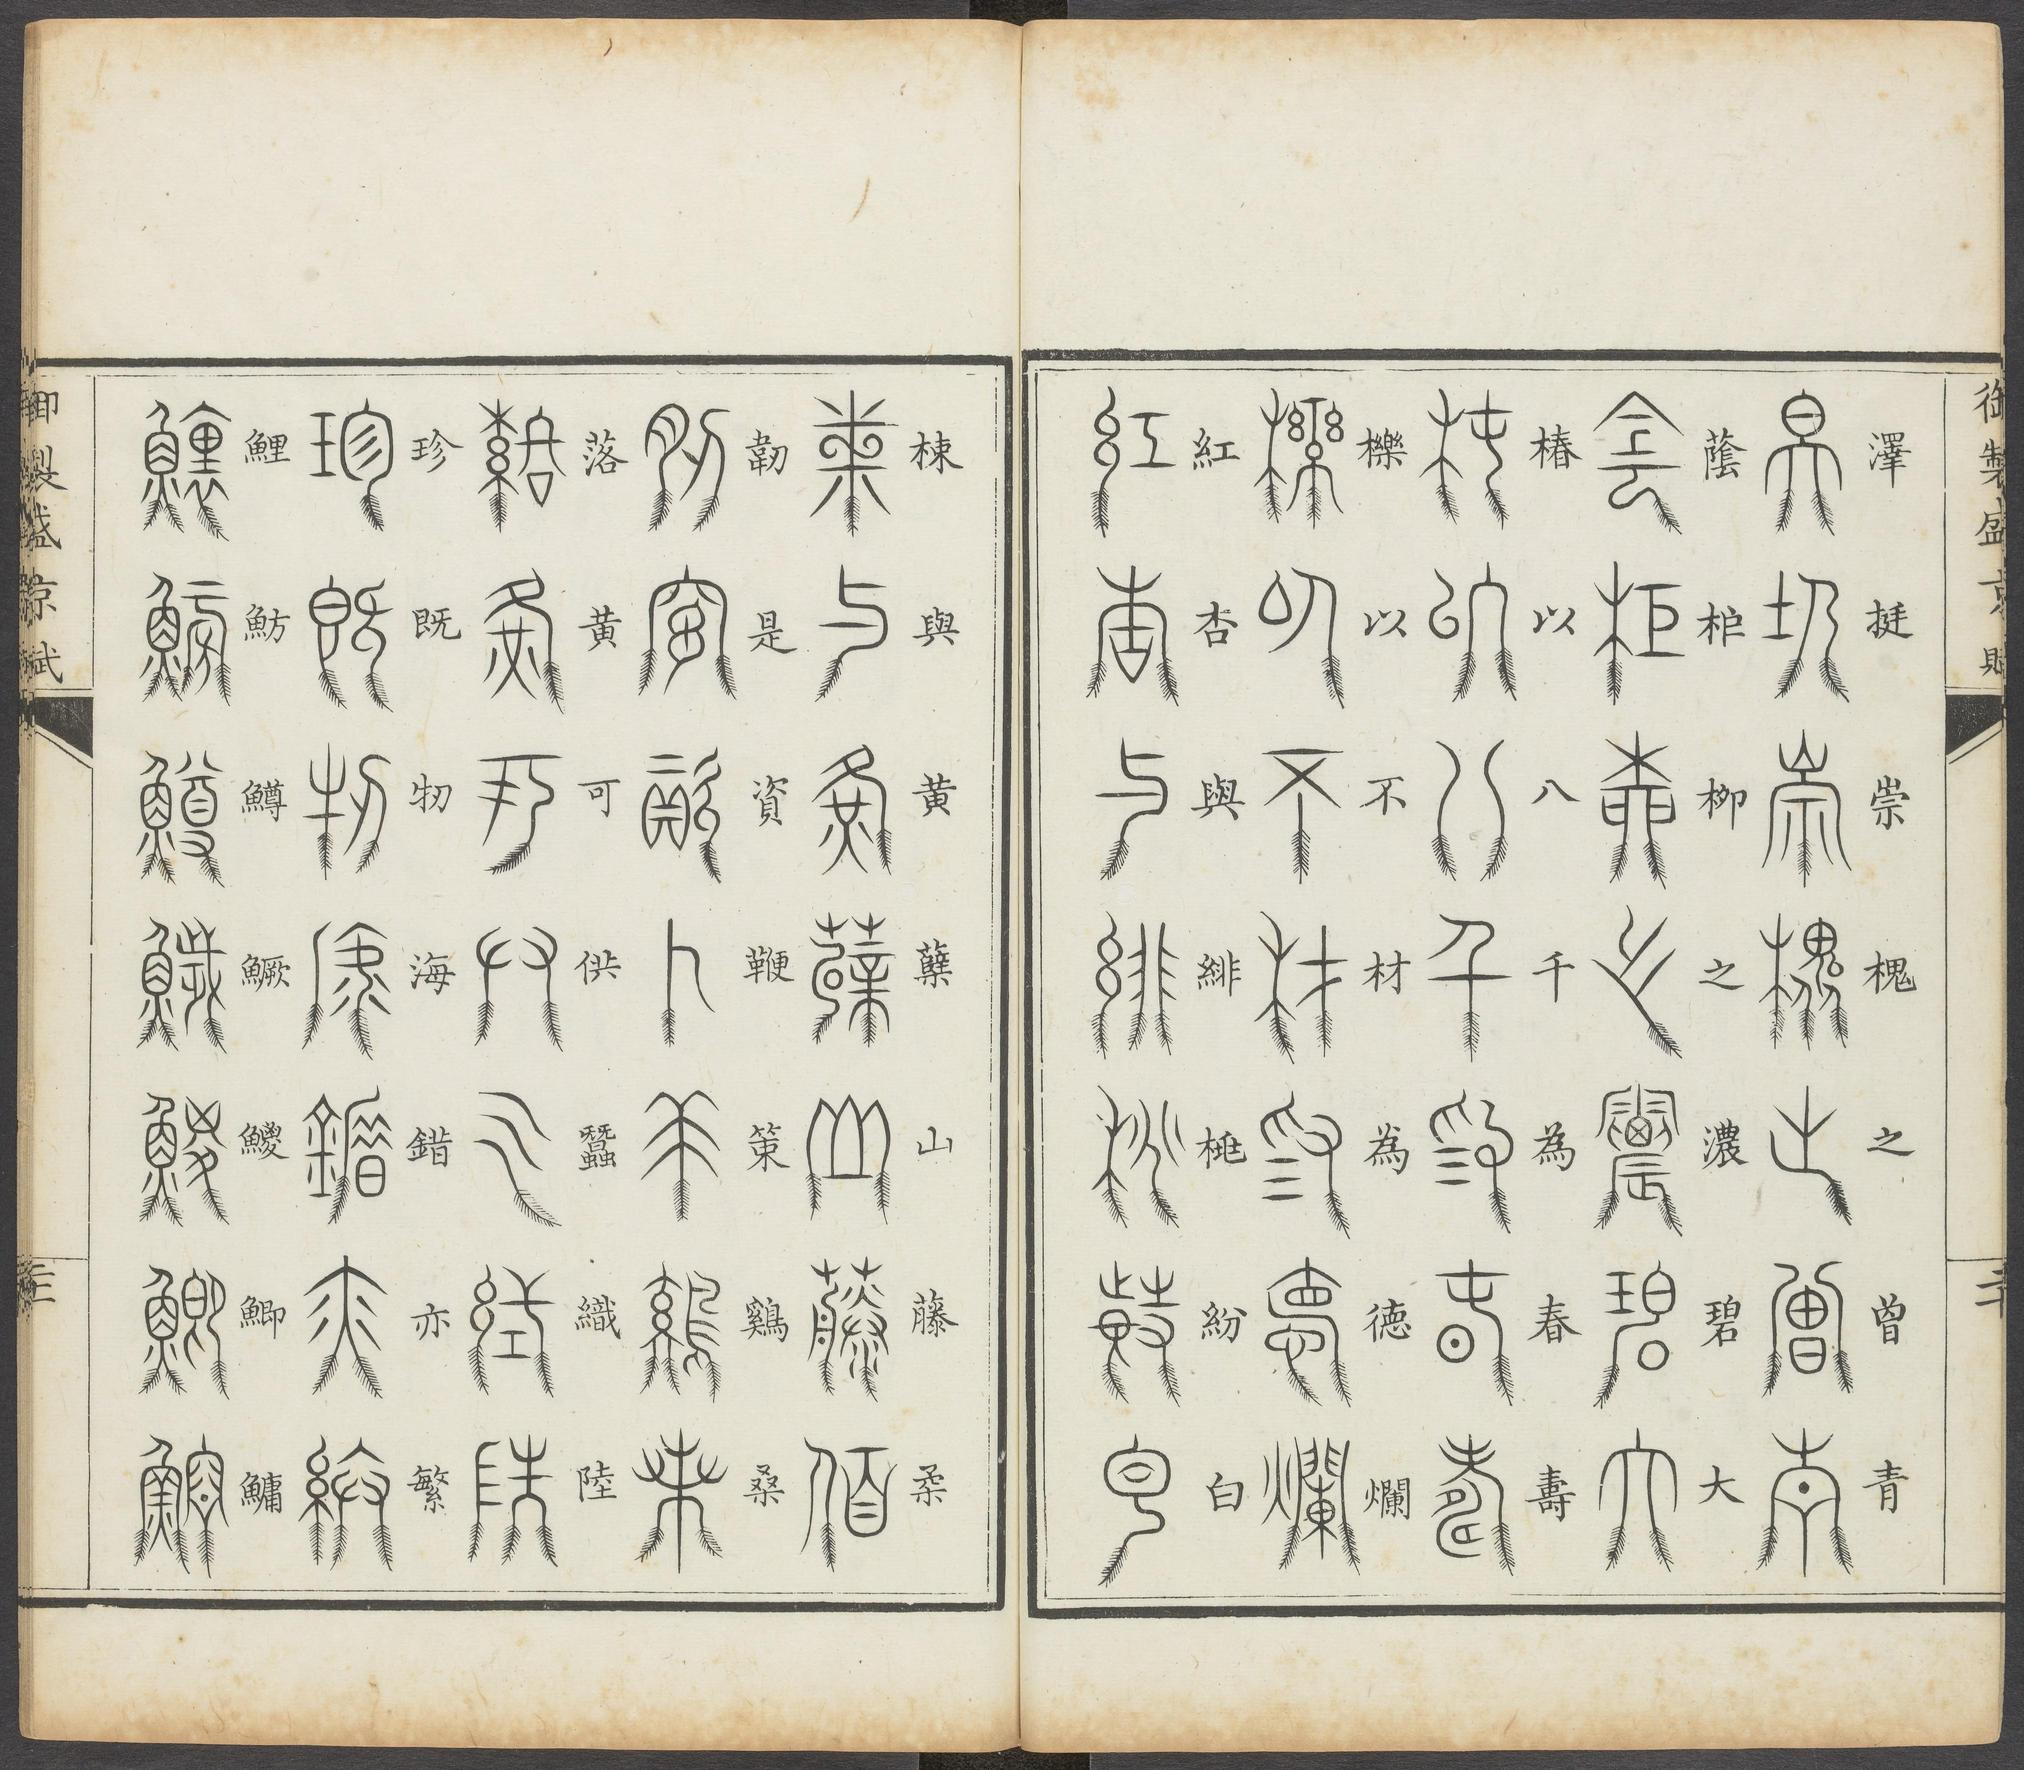 御製盛京賦
二十
澤挺崇槐之曽青
蔭柜柳之濃碧大
椿以八千為春壽
櫟以不材為德爛
紅杏與緋桃紛白
棟與黄蘗山藤柔
韌是資鞭策鷄桑
落黄可供蠶織陸
珍既牣海錯亦繁
鯉魴鱒鱖鯼鯽鱅
御製盛京賦